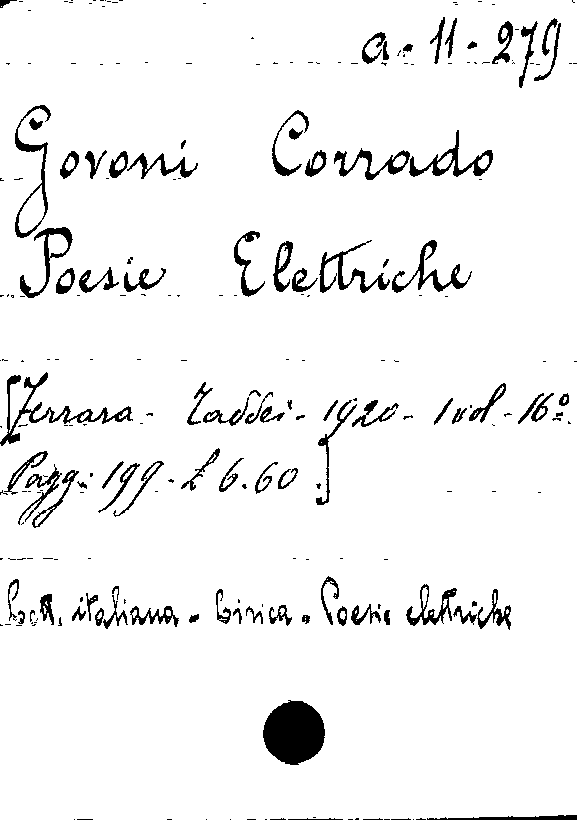 a-11-279
Govoni Corrado
Poesie Elettriche
[Ferrara - Taddei - 1920 - 1 vol - 16º
Pagg: 199 - £ 6.60.]
Lett. italiana - Lirica - Poesie elettriche